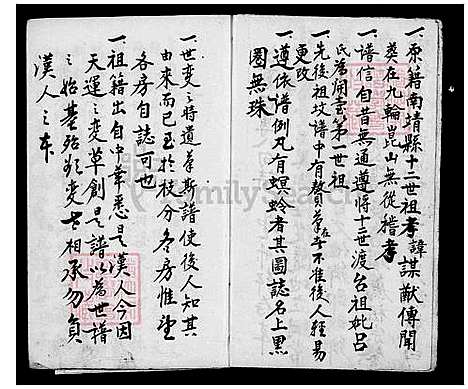 一原籍南靖縣十二世祖考諱謀猷傳聞
葬在九輪崑山無從稽考
一譜信自昔無通遵將十三世渡台祖妣呂
氏為開雲第一世祖
一先後祖坟譜中有贅筆在等不准後人輕易
更改
一遵依譜例凡有螟蛉者其圖誌名上黑
圈無珠
一世變之時道筆斯譜使後人知其
由來而已至於枝分各房惟望
各房自誌可也
一祖籍出自中華悉是漢人今因
天運之變草創是譜以為世楷
之始基殆頻變世相承勿負
漢人之本
FamilySearch